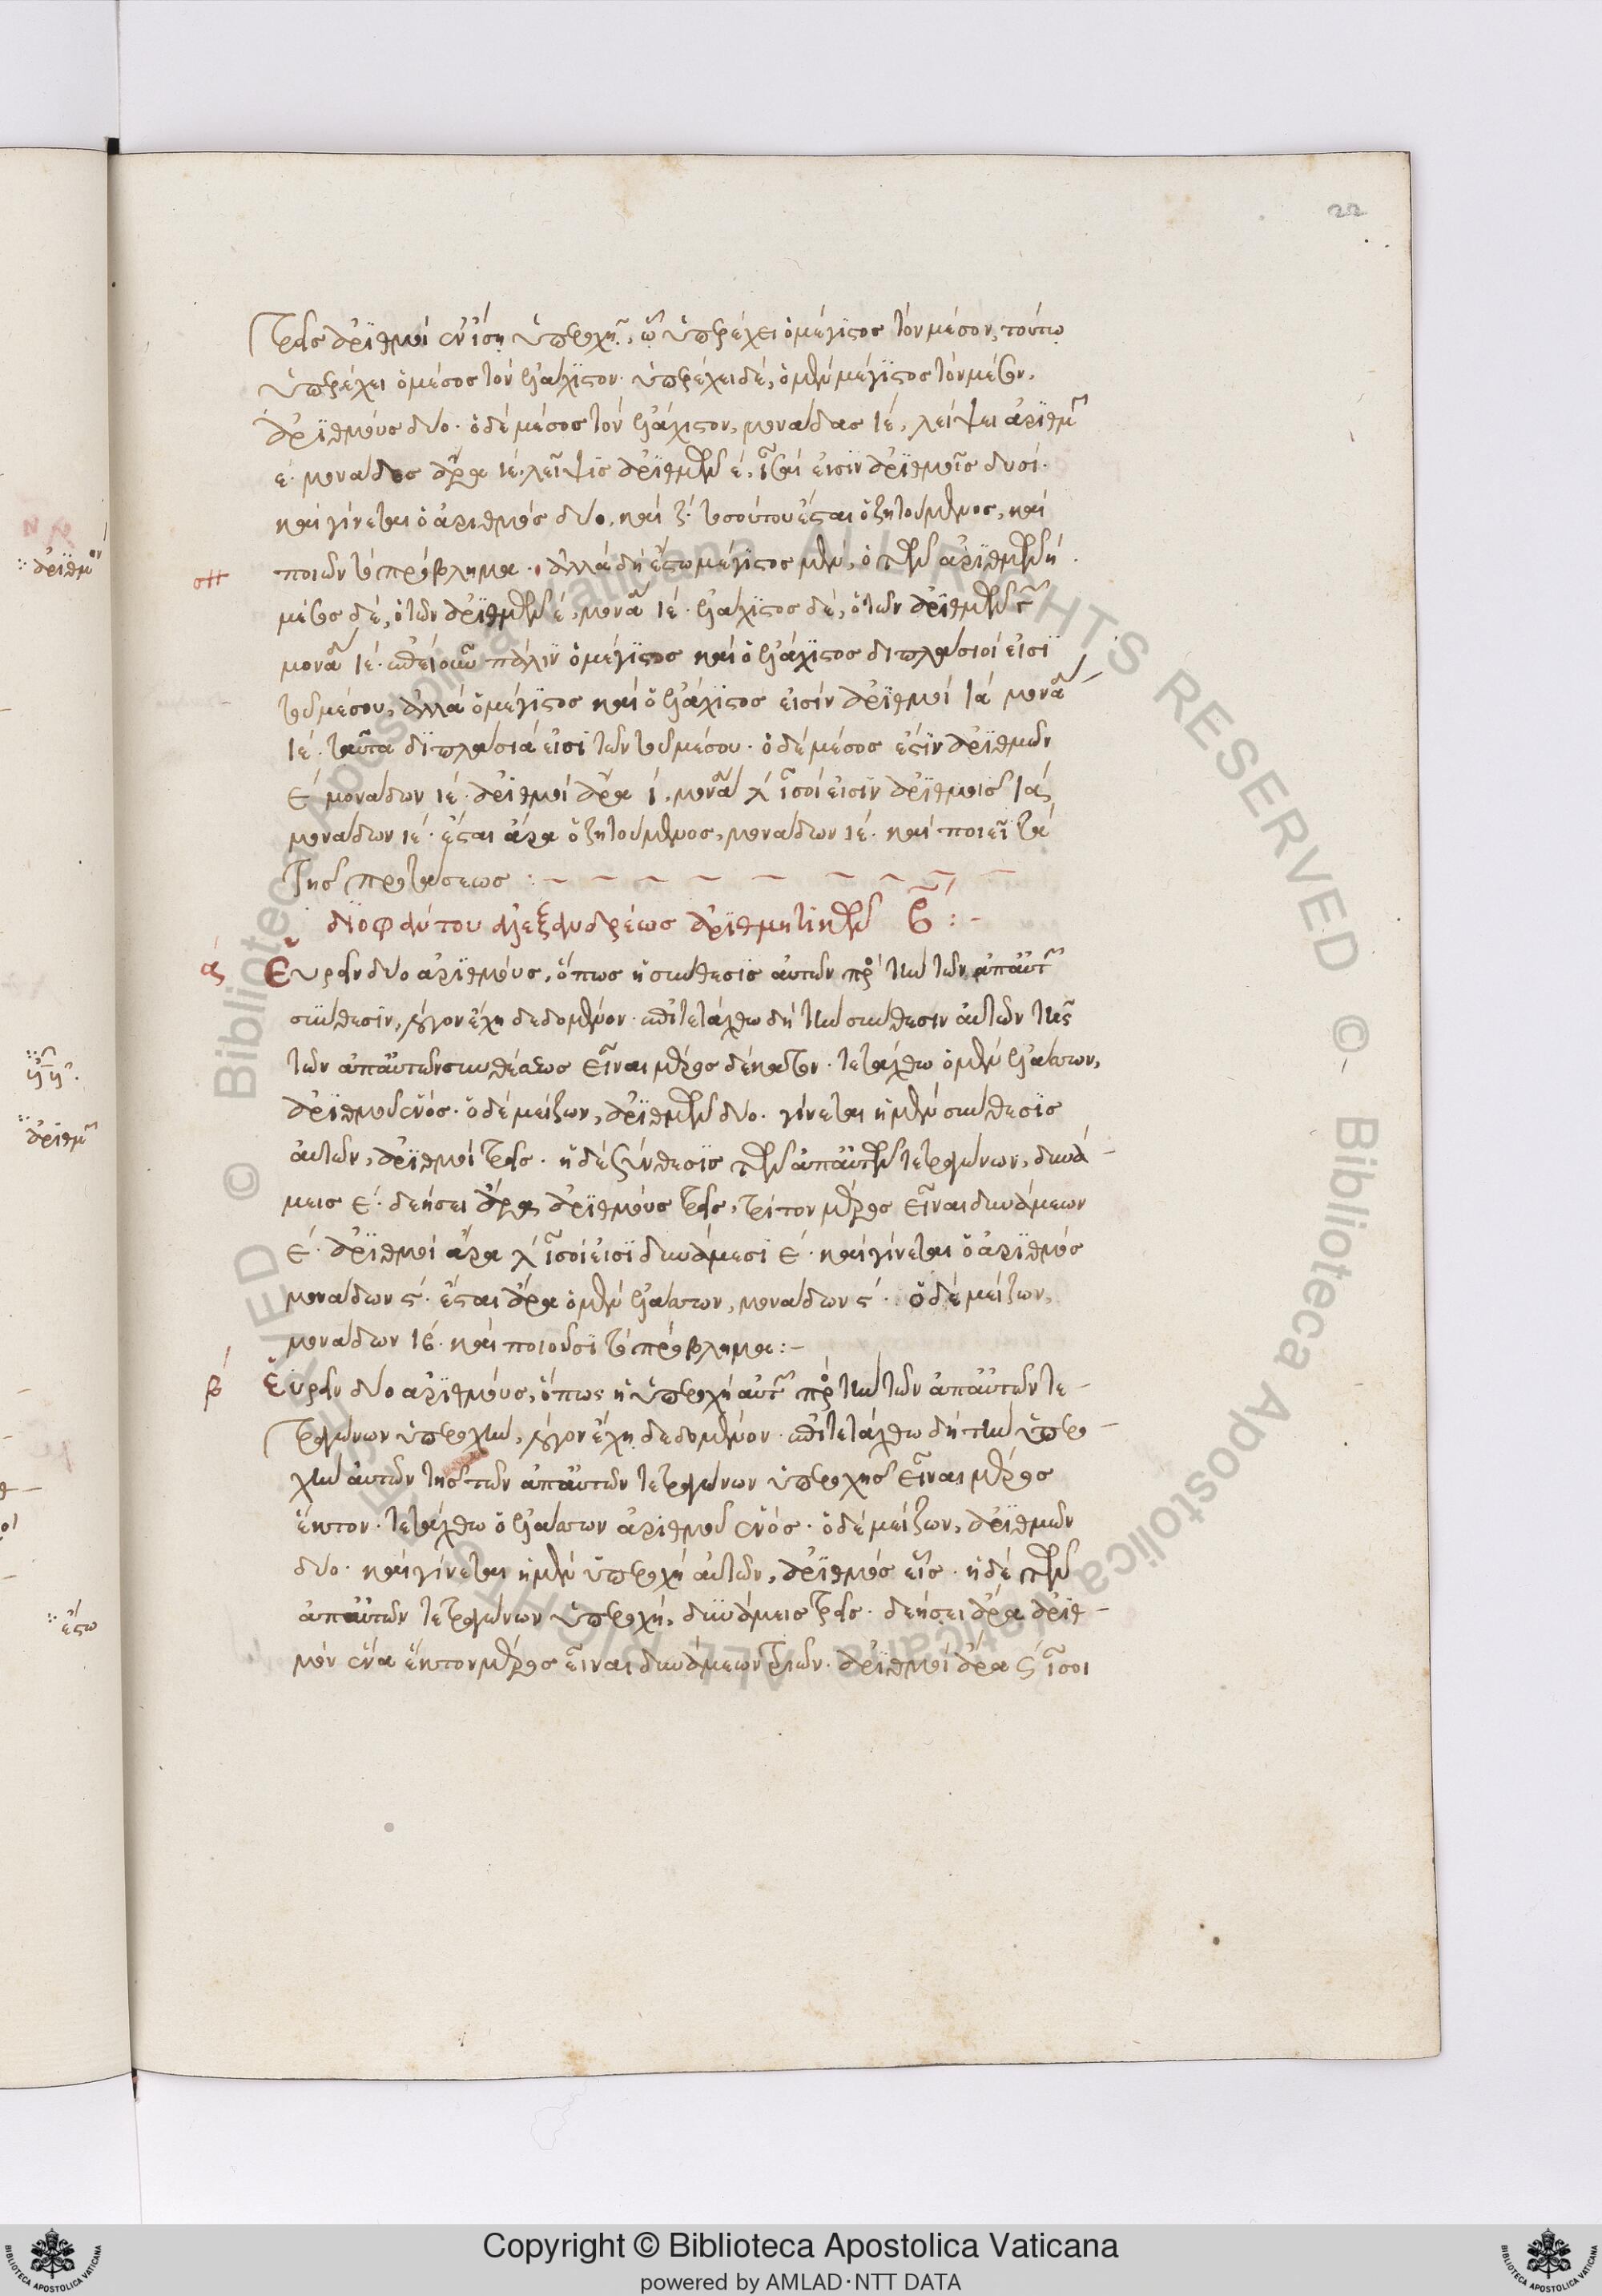 22
τρεῖς ἀριθμοί ἐν ἴση ὑπεροχῆ, ᾧ ὑπερέχει ὁ μέγιστος τὸν μέσον, τούτω
ὑπερέχει ὁ μέσος τὸν ἐλάχιστον· ὑπερέχει δὲ, ὁ μὲν μέγιστος τὸν μέσον,
ἀριθμοὺς δύο· ὁ δὲ μέσος τὸν ἐλάχιστον, μονάδας ιέ, λείψει ἀριθμῶν
έ· μονάδες ἄρα ιέ· λεῖψις ἀριθμῶν έ, ἴσαι εἰσὶν ἀριθμοῖς δυσί·
καὶ γίνεται ὁ ἀριθμὸς δύο, καὶ ζ· τοσούτου ἔσται ὁ ζητούμενος, καὶ
ποιῶν τὸ πρόβλημα· ἀλλὰ δὴ ἔστω μέγιστος μὲν, ὁ τῶν ἀριθμῶν ή·
μέσος δὲ, ὁ τῶν ἀριθμῶν έ, μονάδων ιέ· ἐλάχιστος δὲ, ὁ τῶν ἀριθμῶν γ
μονάδων ιέ· ἐπεὶ οὖν πάλιν ὁ μέγιστος καὶ ὁ ἐλάχιστος διπλασιοί εἰσι
τοῦ μέσου, ἀλλὰ ὁ μέγιστος καὶ ὁ ἐλάχιστος εἰσὶν ἀριθμοί ιά μονάδων
ιέ· ταῦτα διπλασιά εἰσι τῶν τοῦ μέσου· ὁ δὲ μέσος ἐστὶν ἀριθμῶν
έ μονάδων ιέ· ἀριθμοὶ ἄρα ί, μονάδων λ ἴσοί εἰσὶν ἀριθμοῖς ιά,
μονάδων ιέ· ἔσται ἄρα ὁ ζητούμενος, μονάδων ιέ· καὶ ποιεῖ τὰ
τῆς προτάσεως :~
διοφάντου ἀλεξανδρέως ἀριθμητικῶν β :-
ά Εὑρεῖν δύο ἀριθμοὺς, ὅπως ἡ σύνθεσις αὐτῶν πρὸς τὴν τῶν ἀπ' αὐτῶν
σύνθεσιν, λόγον ἔχη δεδομένον· ἐπιτετάχθω δὴ τὴν σύνθεσιν αὐτῶν τῆς
τῶν ἀπ' αὐτῶν συνθέσεως εἶναι μέρος δέκατον· τετάχθω ὁ μὲν ἐλάττων,
ἀριθμοῦ ἑνός· ὁ δὲ μείζων, ἀριθμῶν δύο· γίνεται ἡ μὲν σύνθεσις
αὐτῶν, ἀριθμοὶ τρεῖς· ἡ δὲ σύνθεσις τῶν ἀπ' αὐτῶν τετραγώνων, δυνά-
μεις έ· δεήσει ἄρα ἀριθμοὺς τρεῖς, τρίτον μέρος εἶναι δυνάμεων
έ· ἀριθμοὶ ἄρα λ ἴσοί εἰσι δυνάμεσι έ· καὶ γίνεται ὁ ἀριθμὸς
μονάδων ς· ἔσται ἄρα ὁ μὲν ἐλάττων, μονάδων ς· ὁ δὲ μείζων,
μονάδων ιέ· καὶ ποιοῦσι τὸ πρόβλημα :-
β Εὑρεῖν δύο ἀριθμοὺς, ὅπως ἡ ὑπεροχὴ αὐτῶν πρὸς τὴν τῶν ἀπ' αὐτῶν τε-
τραγώνων ὑπεροχὴν, λόγον ἔχη δεδομένον· ἐπιτετάχθω δὴ τὴν ὑπερο-
χὴν αὐτῶν τῆς τῶν ἀπ' αὐτῶν τετραγώνων ὑπεροχῆς εἶναι μέρος
ἕκτον· τετάχθω ὁ ἐλάττων ἀριθμοῦ ἑνός· ὁ δὲ μείζων, ἀριθμῶν
δύο· καὶ γίνεται ἡ μὲν ὑπεροχὴ αὐτῶν, ἀριθμὸς εἷς· ἡ δὲ τῶν
ἀπ' αὐτῶν τετραγώνων ὑπεροχή, δυνάμεις τρεῖς· δεήσει ἄρα ἀριθ-
μὸν ἕνα ἕκτον μέρος εἶναι δυνάμεων τριῶν· ἀριθμοὶ ἄρα ς ἴσοι
ἔστω
© Biblioteca Apostolica Vaticana ALL RIGHTS RESERVED
Copyright © Biblioteca Apostolica Vaticana
powered by AMLAD·NTT DATA